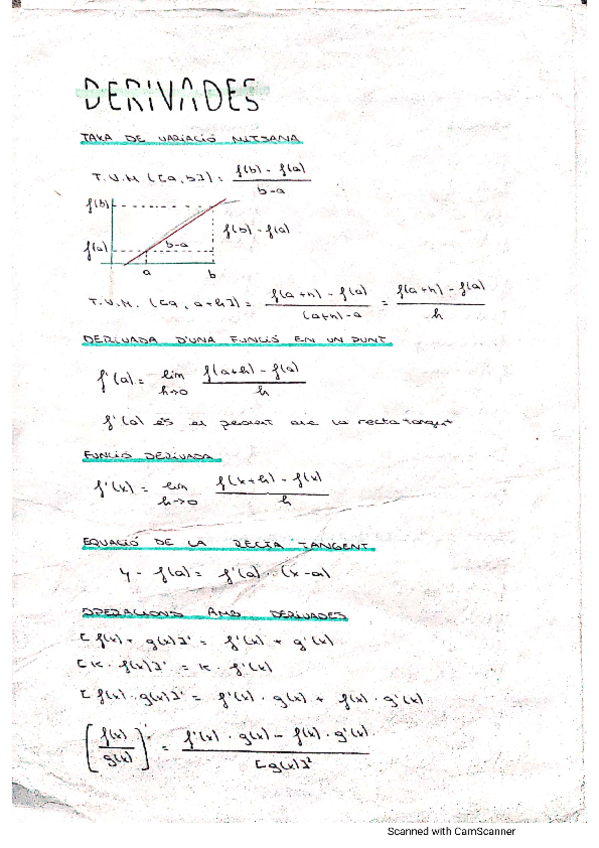 DERIVADES
TAXA DE VARIACIÓ MITJANA
T.V.M ([a, b]) = f(b) - f(a) / b-a
f(b)
f(a)
b-a
f(b) - f(a)
a b
T.V.M. ([a, a+h]) = f(a+h) - f(a) / (a+h)-a = f(a+h) - f(a) / h
DERIVADA D'UNA FUNCIÓ EN UN PUNT
f'(a) = lim h→0 f(a+h) - f(a) / h
f'(a) és el pendent de la recta tangent
FUNCIÓ DERIVADA
f'(x) = lim h→0 f(x+h) - f(x) / h
EQUACIÓ DE LA RECTA TANGENT
y - f(a) = f'(a) · (x-a)
OPERACIONS AMB DERIVADES
[f(x) + g(x)]' = f'(x) + g'(x)
[K · f(x)]' = K · f'(x)
[f(x) · g(x)]' = f'(x) · g(x) + f(x) · g'(x)
[f(x) / g(x)]' = f'(x) · g(x) - f(x) · g'(x) / [g(x)]²
Scanned with CamScanner